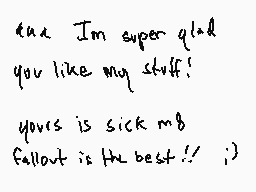 aaa Im super glad
you like my stuff!
yours is sick m8
fallout is the best!! ;)